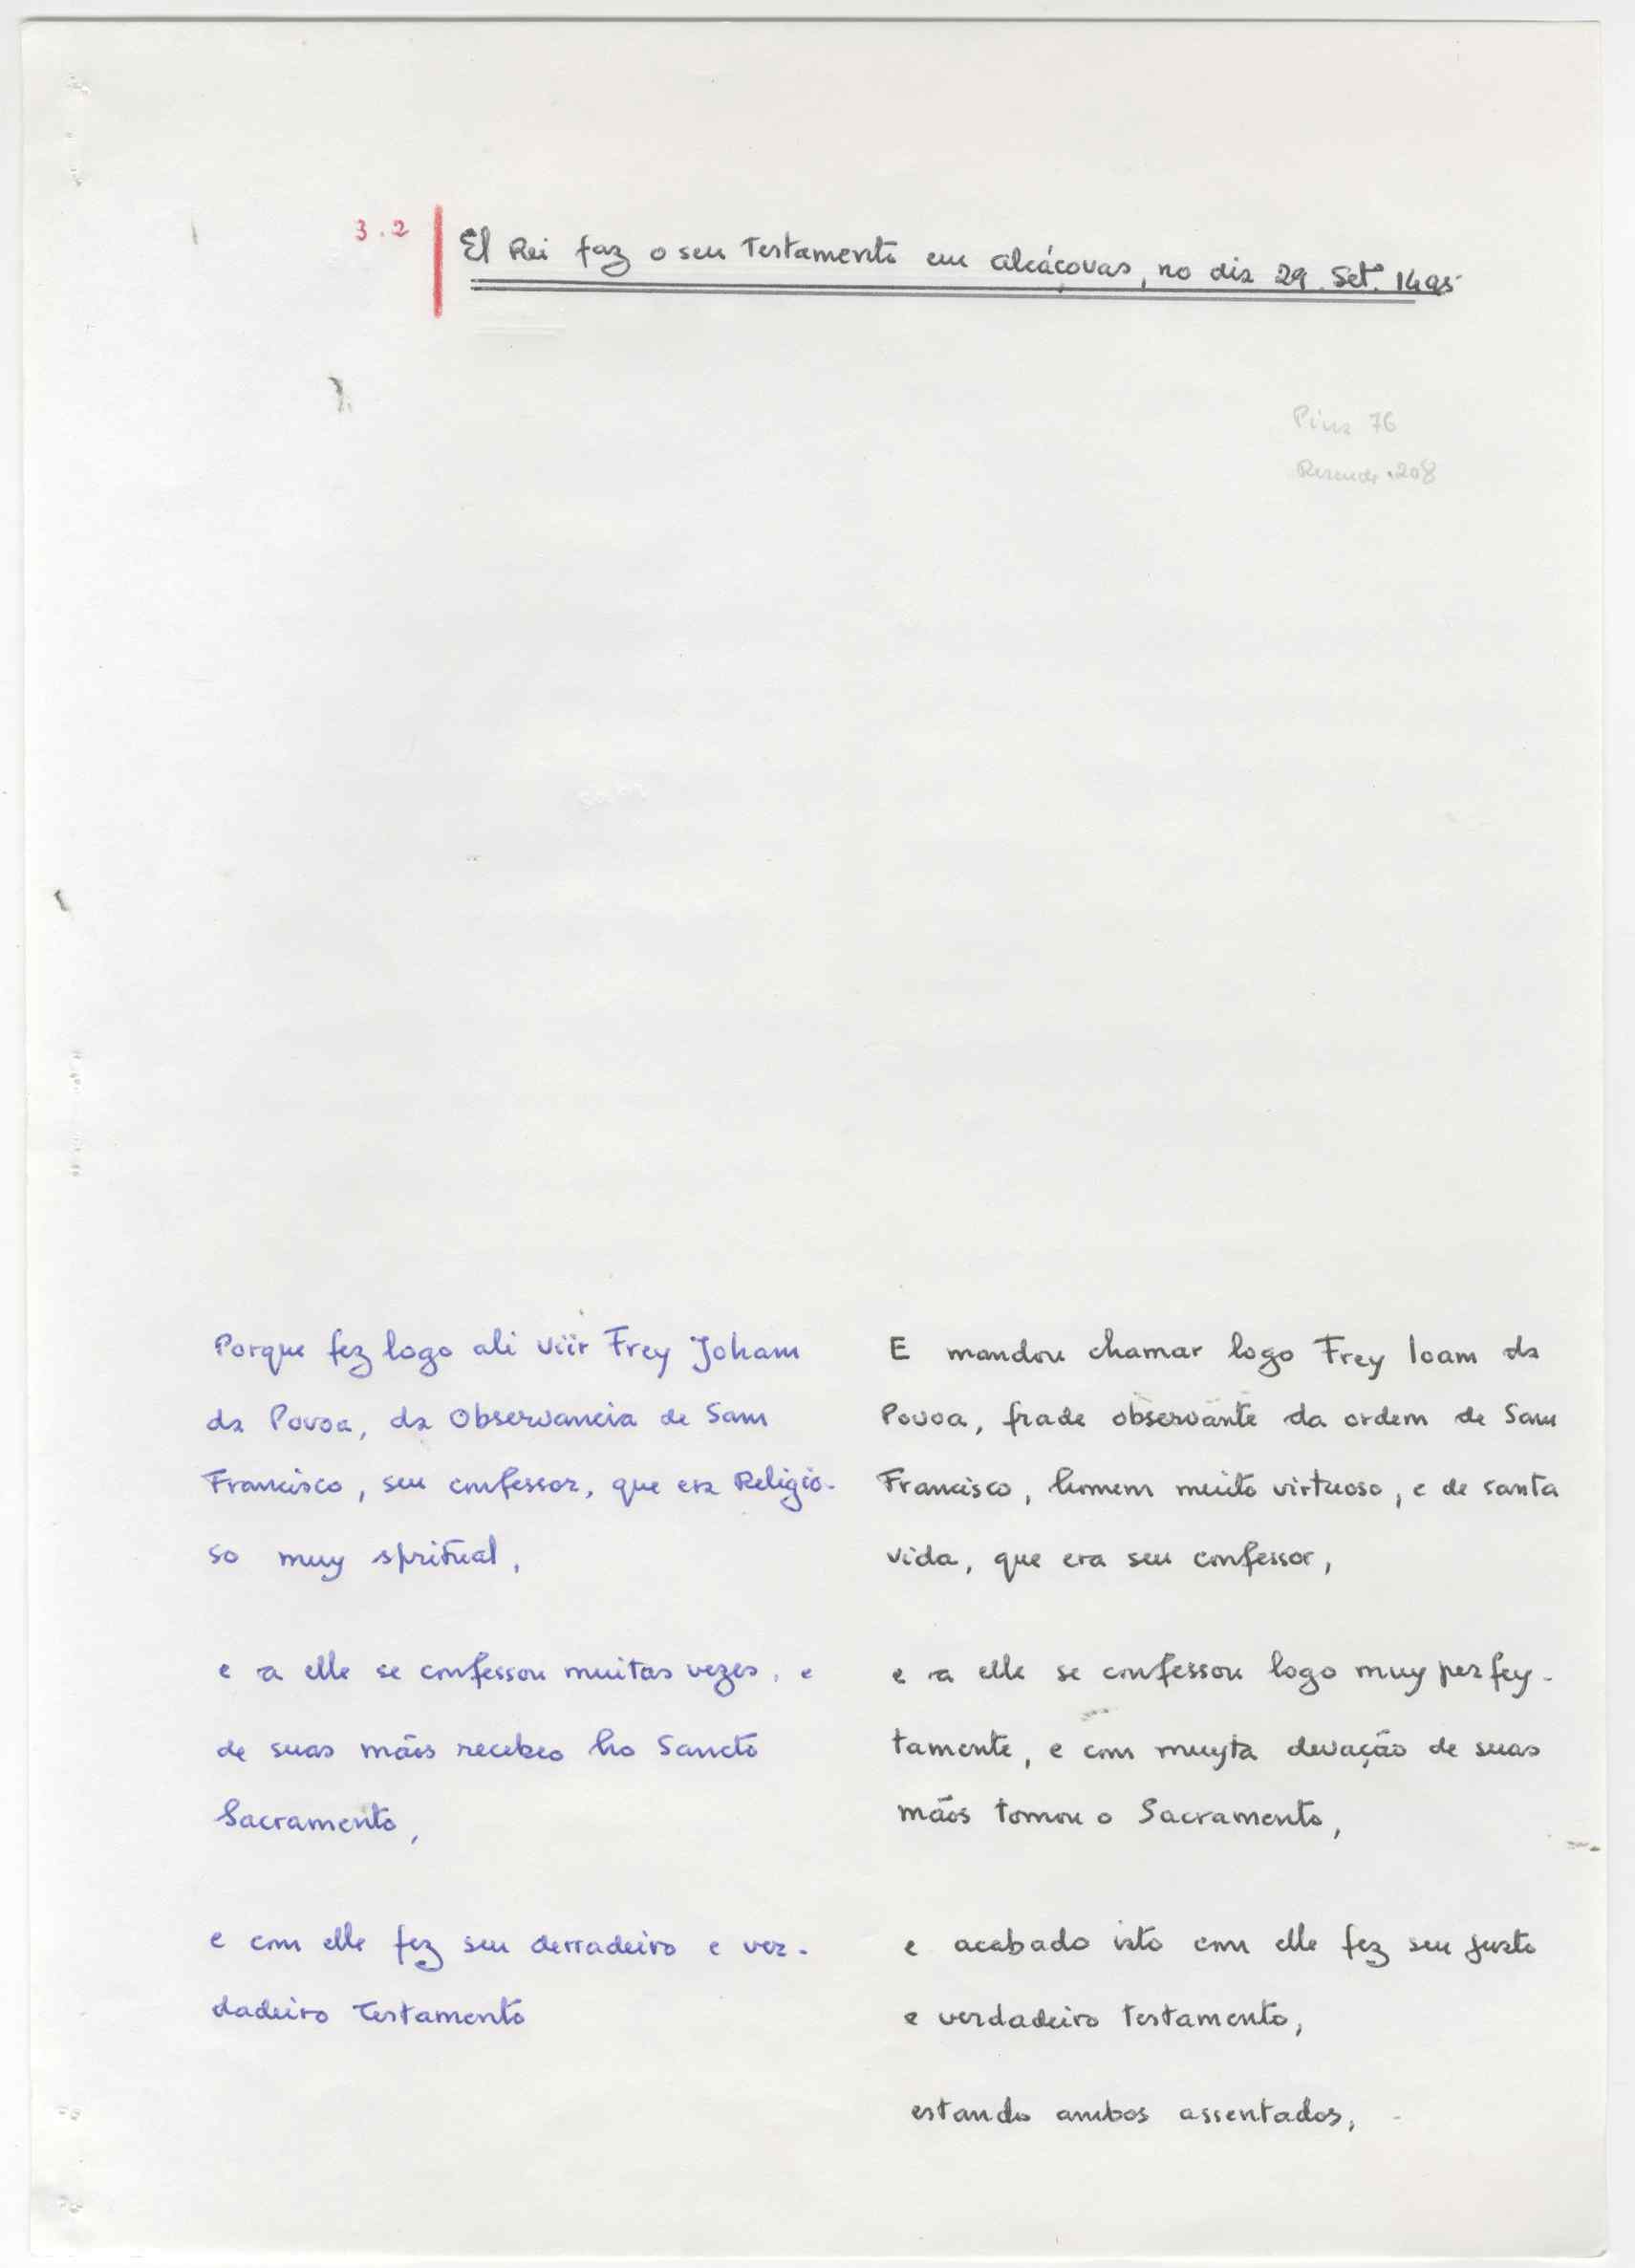 3.2
El Rei faz o seu Testamento em Alcáçovas, no dia 29. Setº. 1495
Pina 76
Resende . 208
Porque fez logo ali viir Frey Joham
da Povoa, da Observancia de Sam
Francisco, seu confessor, que era Religio-
so muy spritual,
e a elle se confessou muitas vezes, e
de suas mãos recebeo ho Sancto
Sacramento,
e com elle fez seu derradeiro e ver-
dadeiro Testamento
E mandou chamar logo Frey Ioam da
Povoa, frade observante da ordem de Sam
Francisco, homem muito virtuoso, e de santa
vida, que era seu confessor,
e a elle se confessou logo muy perfey-
tamente, e com muyta devação de suas
mãos tomou o Sacramento,
e acabado isto com elle fez seu justo
e verdadeiro testamento,
estando ambos assentados,